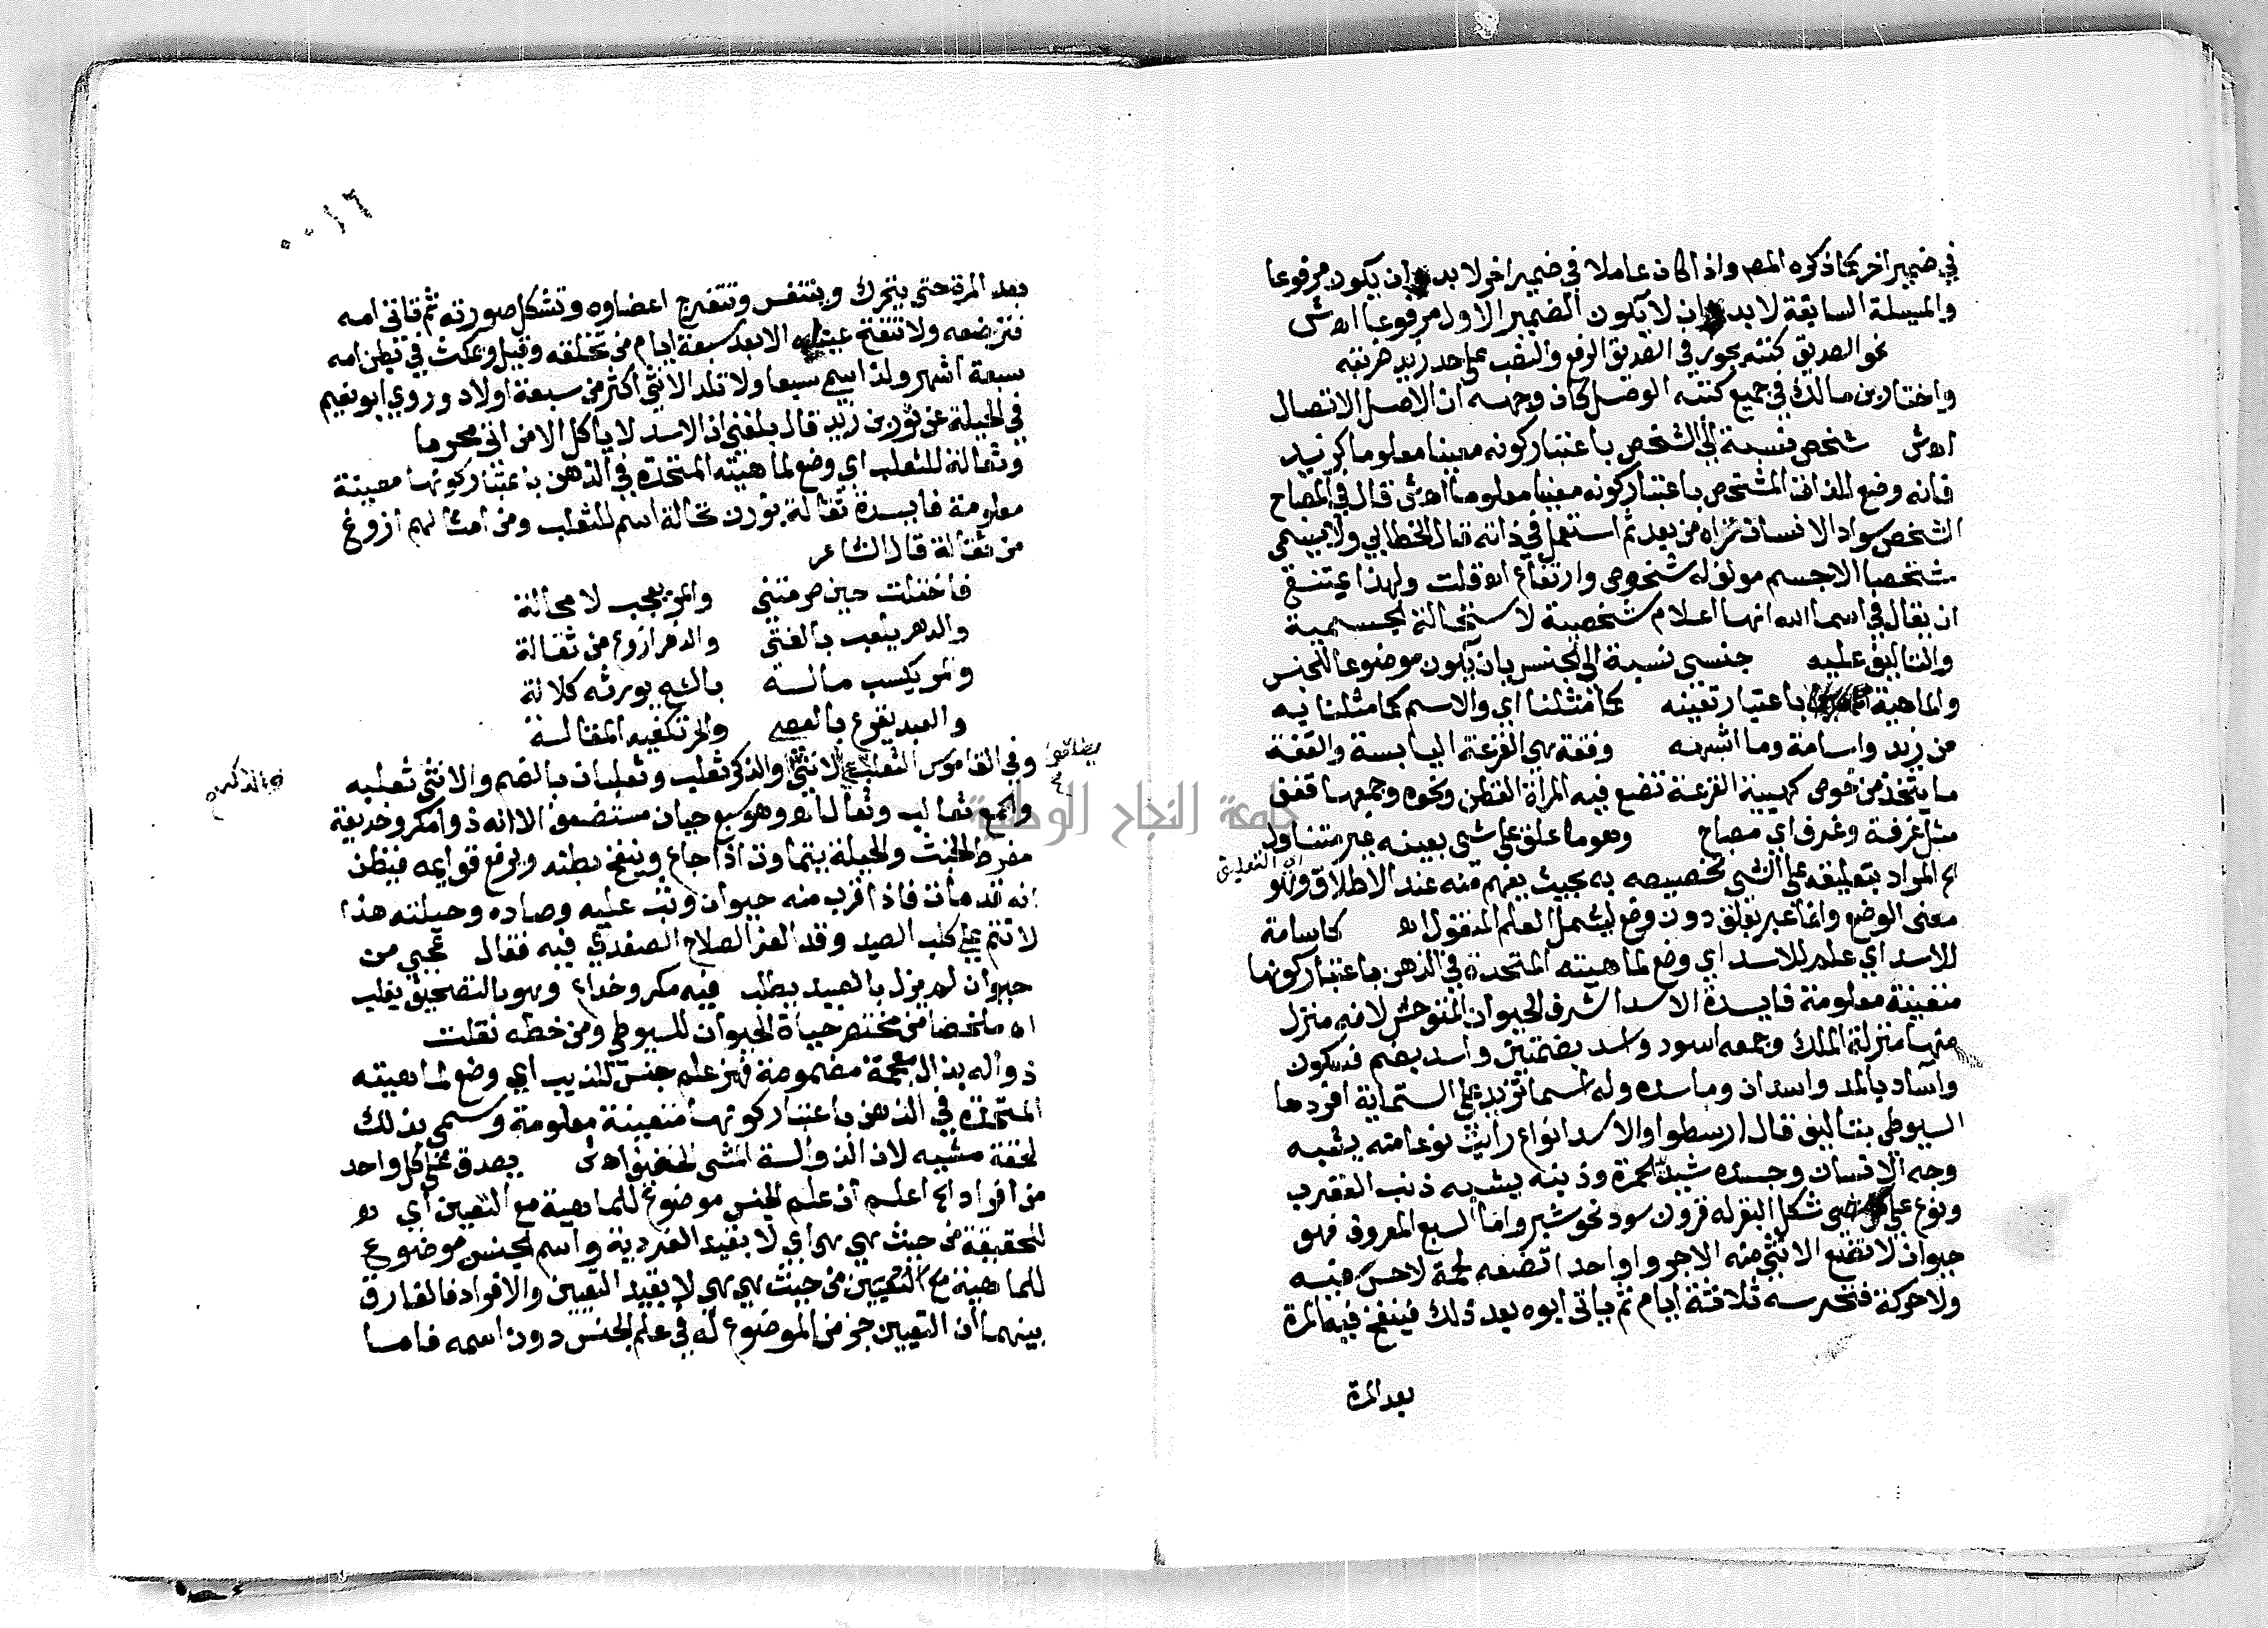 في ضمير اخر كما ذكره المصر واذا كان عاملا في ضمير اخر لا بد ان يكون مرفوعا
والمسيلة السابقة لا بد ان لا يكون الضمير الاول مرفوعا اه ش
نحو الصديق كنته يجوز في الصديق الرفع والنصب على حد زيد ضربته
واختار بن مالك في جميع كنته الوصل كان وجهه ان الاصل الاتصال
اه ش شخصي نسبة الى الشخص باعتبار كونه معينا معلوما كزيد
فانه وضع للذات المشخص باعتبار كونه معينا معلوما اه ش قال في المصباح
الشخص سواد الانسان تراه من بعد ثم استعمل في ذاته قال الخطابي ولا يسمى
شخصا الا جسم مولف له شخوص وارتفاع اه قلت ولهذا يمتنع
ان يقال في اسما الله انها اعلام شخصية لاستحالة الجسمية
والتاليف عليه جنسي نسبة الى الجنس بان يكون موضوعا للجنس
والماهية باعتبار تعينه كما مثلنا اي والاسم كما مثلنا به
من زيد واسامة وما اشبهه وقفة هي القرعة اليابسة والقفة
ما يتخذ من خوص كهيئة القرعة تضع فيه المراة القطن ونحوه وجمعها قفف
مثل غرفة وغرف اي مصباح وهو ما علق على شي بعينه غير متناول
الخ المراد بتعليقه على الشي تخصيصه به بحيث يفهم منه عند الاطلاق وهو
التعليق
معنى الوضع وانما عبر بعلق دون وضع ليشمل العلم المنقول اه كاسامة
للاسد اي علم للاسد اي وضع لماهيته المتحدة في الذهن باعتبار كونها
متعينة معلومة فايدة الاسد اشرف الحيوان المتوحش لانه منزل
منها منزلة الملك وجمعه اسود واسد بضمتين واسد بضم فسكون
واساد بالمد واسدان وماسدة وله اسما تزيد على الستماية افردها
السيوطي بتاليف قال ارسطوا والاسد انواع رايت نوعا منه يشبه
وجه الانسان وجسده شديد الحمرة وذنبه يشبه ذنب العقرب
ونوع على شكل البقر له قرون سود نحو شبر واما السبع المعروف فهو
حيوان لا تضع الانثى منه الا جروا واحدا تضعه لحمة لا حس فيه
ولا حركة فتحرسه ثلاثة ايام ثم ياتي ابوه بعد ذلك فينفخ فيه المرة
بعد المرة
بعد المرة حتى يتحرك ويتنفس وتنفرج اعضاوه وتشكل صورته ثم تاتي امه
فترضعه ولا تنفتح عيناه الا بعد سبعة ايام من تخلقه وقيل ومكث في بطن امه
سبعة اشهر ولذا سمي سبعا ولا تلد الانثى اكثر من سبعة اولاد وروي ابو نعيم
في الحيلة عن ثور بن زيد قال بلغني ان الاسد لا ياكل الا من اتى محرما
وثعالة للثعلب اي وضع لماهيته المتحدة في الذهن باعتبار كونها معينة
معلومة فايدة ثعالة بوزن نخالة اسم للثعلب ومن امثالهم اروغ
من ثعالة قال الشاعر
فاختلت حين صرمتني والمر يعجب لا محالة
والدهر يلعب بالفتى والدهر اروغ من ثعالة
والمر يكسب ماله بالشح يورثه كلالة
والعبد يقرع بالعصى والحر تكفيه المقالة
وفي القاموس الثعلب الانثى والذكر ثعلب وثعلبان بالضم والانثى ثعلبه
والجمع ثعالب وثعال اه وهو سبع جبان مستضعف الا انه ذو مكر وخديعة
مفرط الخبث والحيلة يتماوت اذا جاع وينفخ بطنه ويرفع قوايمه فيظن
انه قد مات فاذا قرب منه حيوان وثب عليه وصاده وحيلته هذا
لا تتم على كلب الصيد وقد الغز الصلاح الصفدي فيه فقال عجبي من
حيوان لم يزل بالصيد يطلب فيه مكر وخداع وهو بالتصحيف يغلب
اه ملخصا من مختصر حياة الحيوان للسيوطي ومن خطه نقلت
ذواله بذال معجمة مضمومة فهمز علم جنس للذيب اي وضع لماهيته
المتحدة في الذهن باعتبار كونها متعينة معلومة وسمي بذلك
لخفة مشيه لان الذوالة المشي الخفيف اه ش يصدق على كل واحد
من افراد الخ اعلم ان علم الجنس موضوع للماهية مع التعين اي
للحقيقة من حيث هي هي اي لا بقيد الفردية واسم الجنس موضوع
للماهية مع التعيين من حيث هي هي لا بقيد التعين والافراد فالفارق
بينهما ان التعيين جز من الموضوع له في علم الجنس دون اسمه فاسا